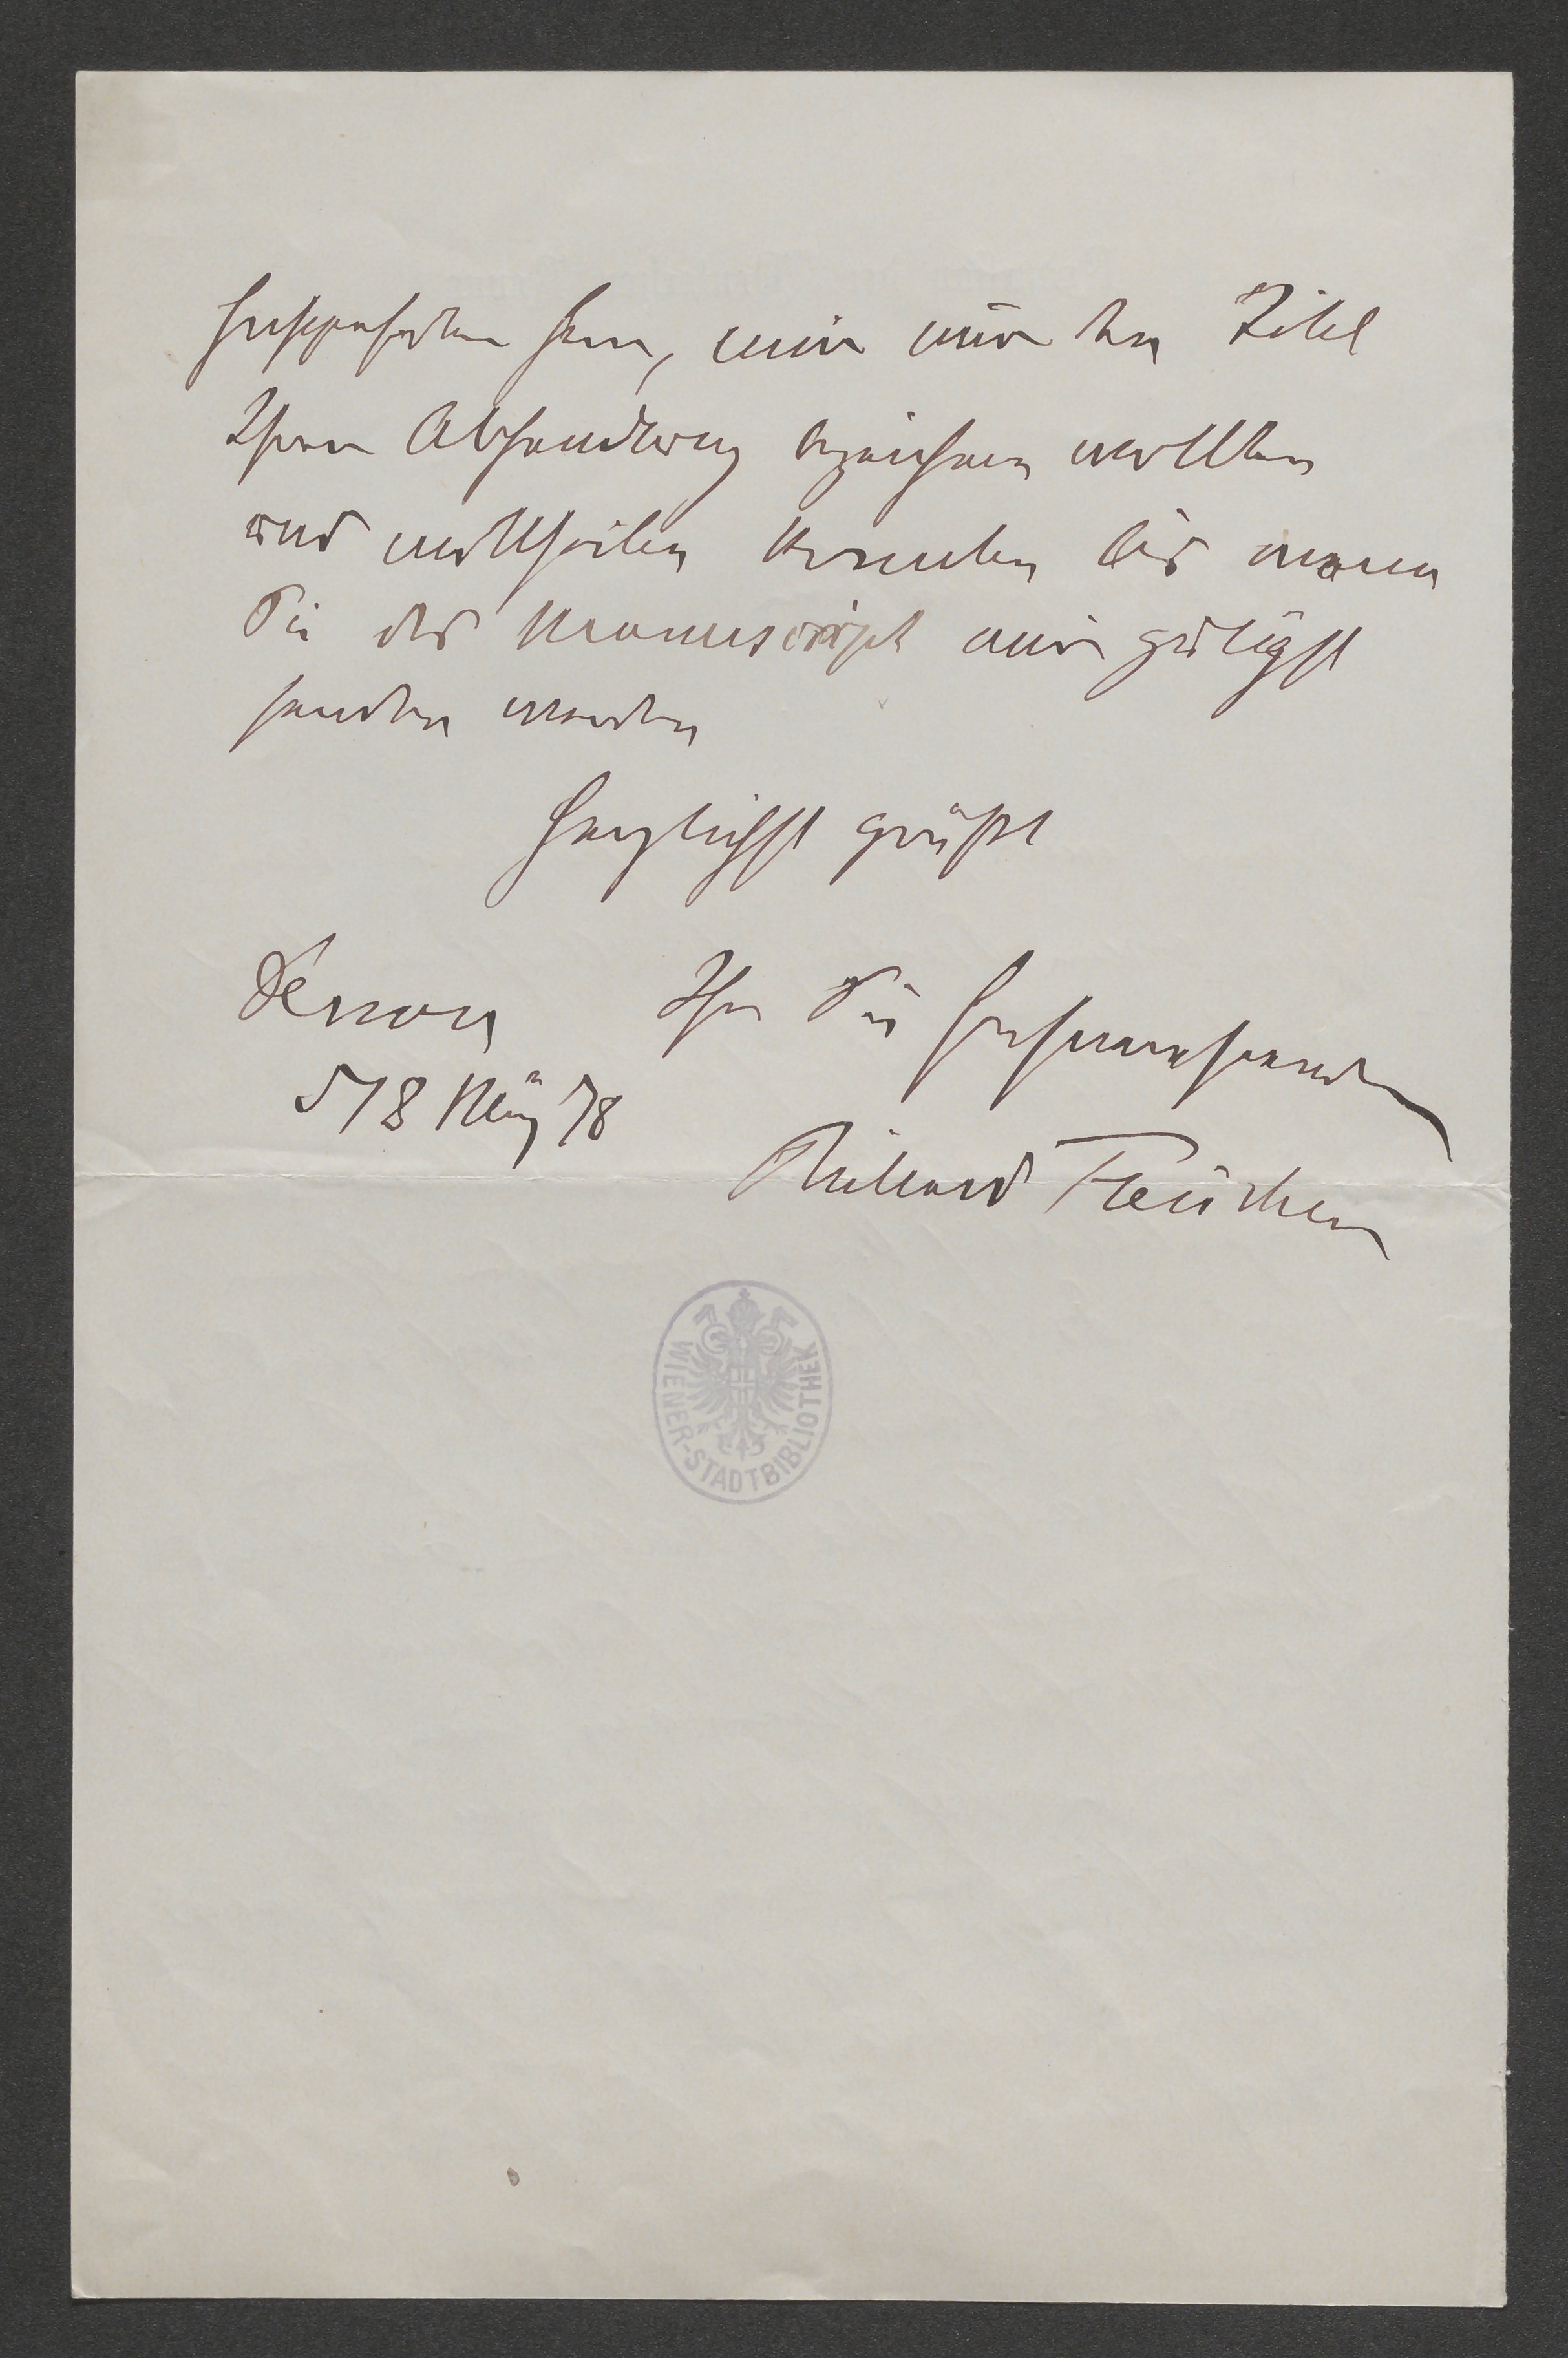 hochgeehrter Herr, mir nur den Titel
Ihrer Abhandlung bezeichnen wollten
und mittheilen könnten bis wann
Sie das Manuscript mir gütigst
senden werden
Herzlichst grüßt
Ihr Sie hochverehrender
18 März 78
Richard Fleischer
WIENER-STADTBIBLIOTHEK